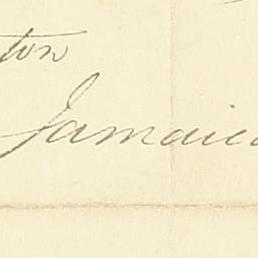 ton
Jamaica